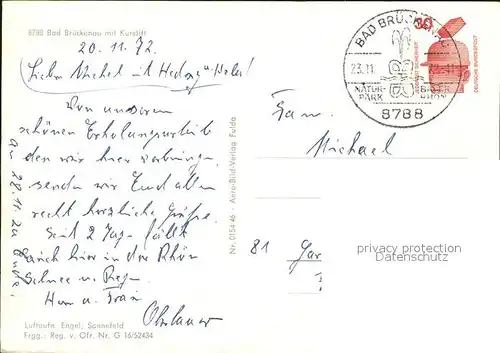 8788 Bad Brückenau mit Kurstift
20.11.72.
Lieber Michel mit Hedwig u.
Von unserem
schönen Erholungsurlaub
den wir hier verbringen
senden wir Euch allen
recht herzliche Grüße.
Seit 2 Tagen fällt
auch hier in der Rhön
Schnee u. Regen
Herr u. Frau
Oberlauer
an 28.11.
Luftaufn. Engel, Sannefeld
Frgg.: Reg. v. Ofr. Nr. G 16/52434
Nr. 0154 46 - Aero-Bild-Verlag Fulda
BAD BRÜCKENAU
23.11.
NATUR-
PARK
8788
30
DEUTSCHE BUNDESPOST
Fam.
Michael
81 Gar
privacy protection
Datenschutz